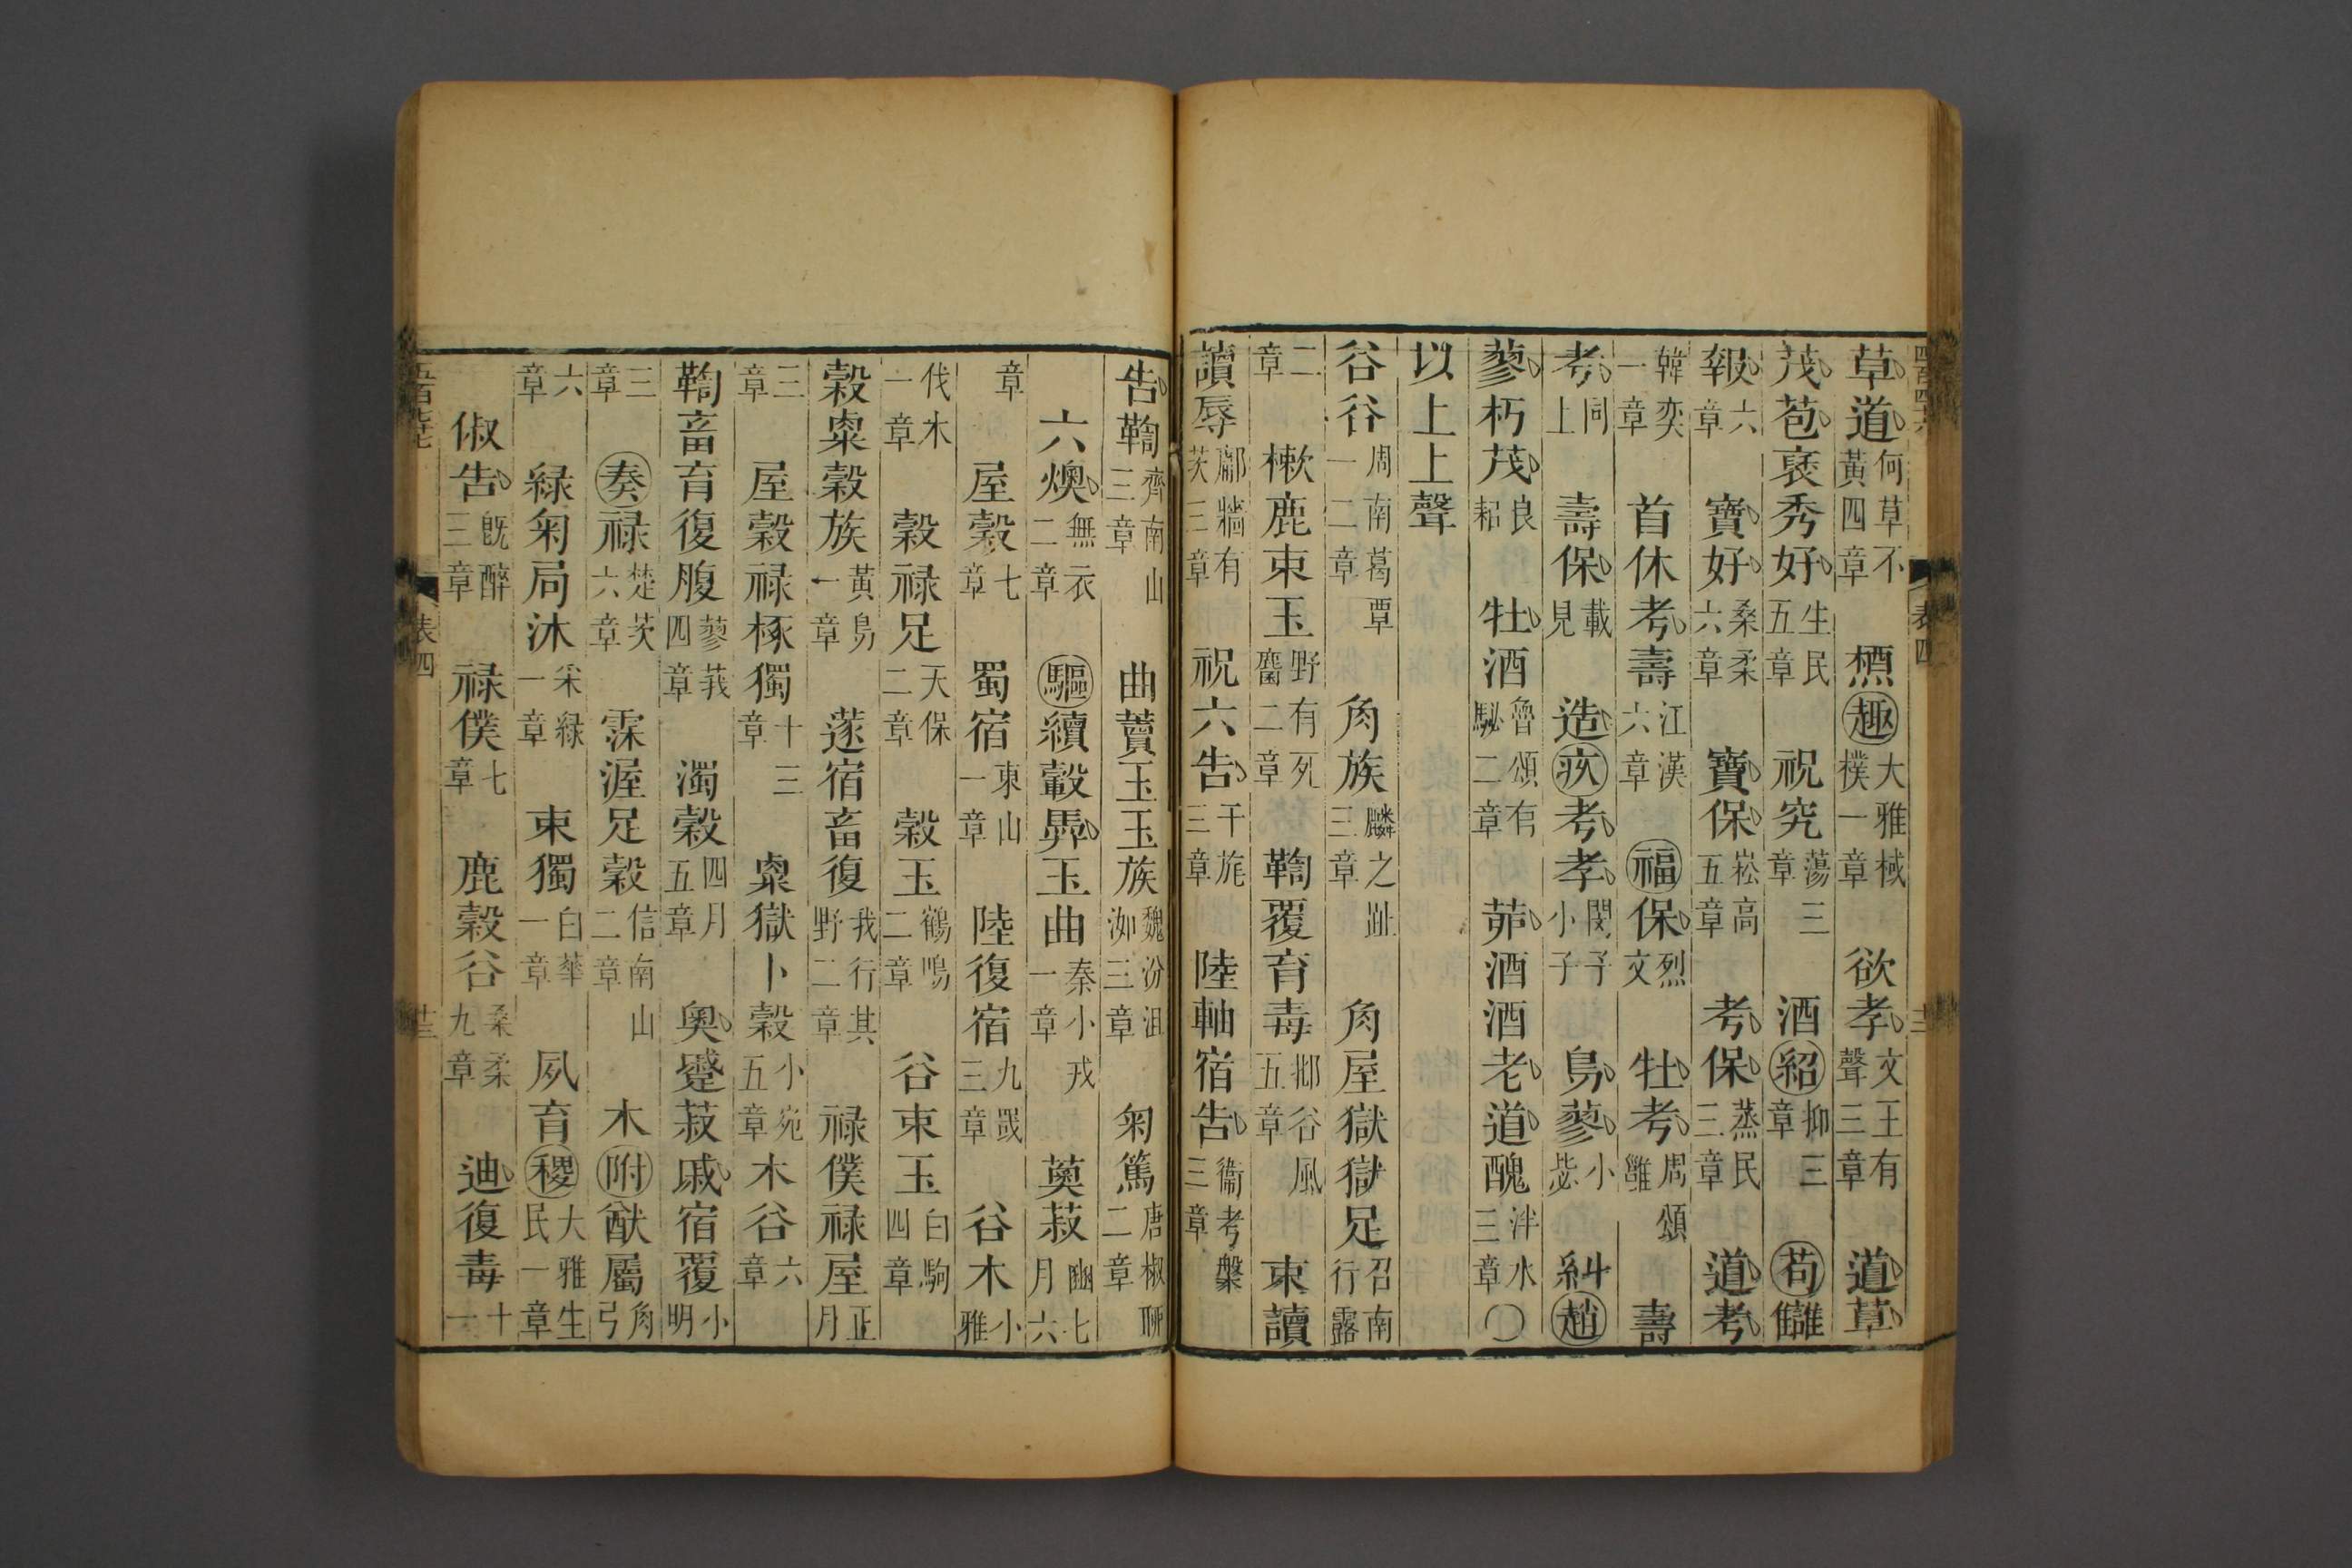 草道何草不黃四章　槱趣大雅棫樸一章　欲孝文王有聲三章　道草
茂苞褎秀好生民五章　祝究蕩三章　酒紹抑三章　苟讎
報六章　寶好桑柔六章　寶保崧高五章　考保蒸民三章　道考
韓奕一章　首休考壽江漢六章　福保烈文　牡考周頌雝　壽
考同上　壽保載見　造疚考孝閔予小子　鳥蓼小毖　糾趙
蓼朽茂良耜　牡酒魯頌有駜二章　茆酒酒老道醜泮水三章〇
以上上聲
谷谷周南葛覃一二章　角族麟之趾三章　角屋獄獄足召南行露
二章　樕鹿束玉野有死麕二章　鞫覆育毒邶谷風五章　束讀
讀辱鄘牆有茨三章　祝六告干旄三章　陸軸宿告衞考槃三章
告鞫齊南山三章　曲藚玉玉族魏汾沮洳三章　匊篤唐椒聊二章
六燠無衣二章　驅續轂馵玉曲秦小戎一章　薁菽豳七月六
章　屋穀七章　蜀宿東山一章　陸復宿九罭三章　谷木小雅
伐木一章　穀祿足天保二章　穀玉鶴鳴二章　谷束玉白駒四章
穀粟穀族黃鳥一章　蓫宿畜復我行其野二章　祿僕祿屋正月
三章　屋穀祿椓獨十三章　粟獄卜穀小宛五章　木谷六章
鞫畜育復腹蓼莪四章　濁穀四月五章　奧蹙菽戚宿覆小明
三章　奏祿楚茨六章　霂渥足穀信南山二章　木附猷屬角弓
六章　綠匊局沐采綠一章　束獨白華一章　夙育稷大雅生民一章
俶告既醉三章　祿僕七章　鹿穀谷桑柔九章　迪復毒十一
表四
表四